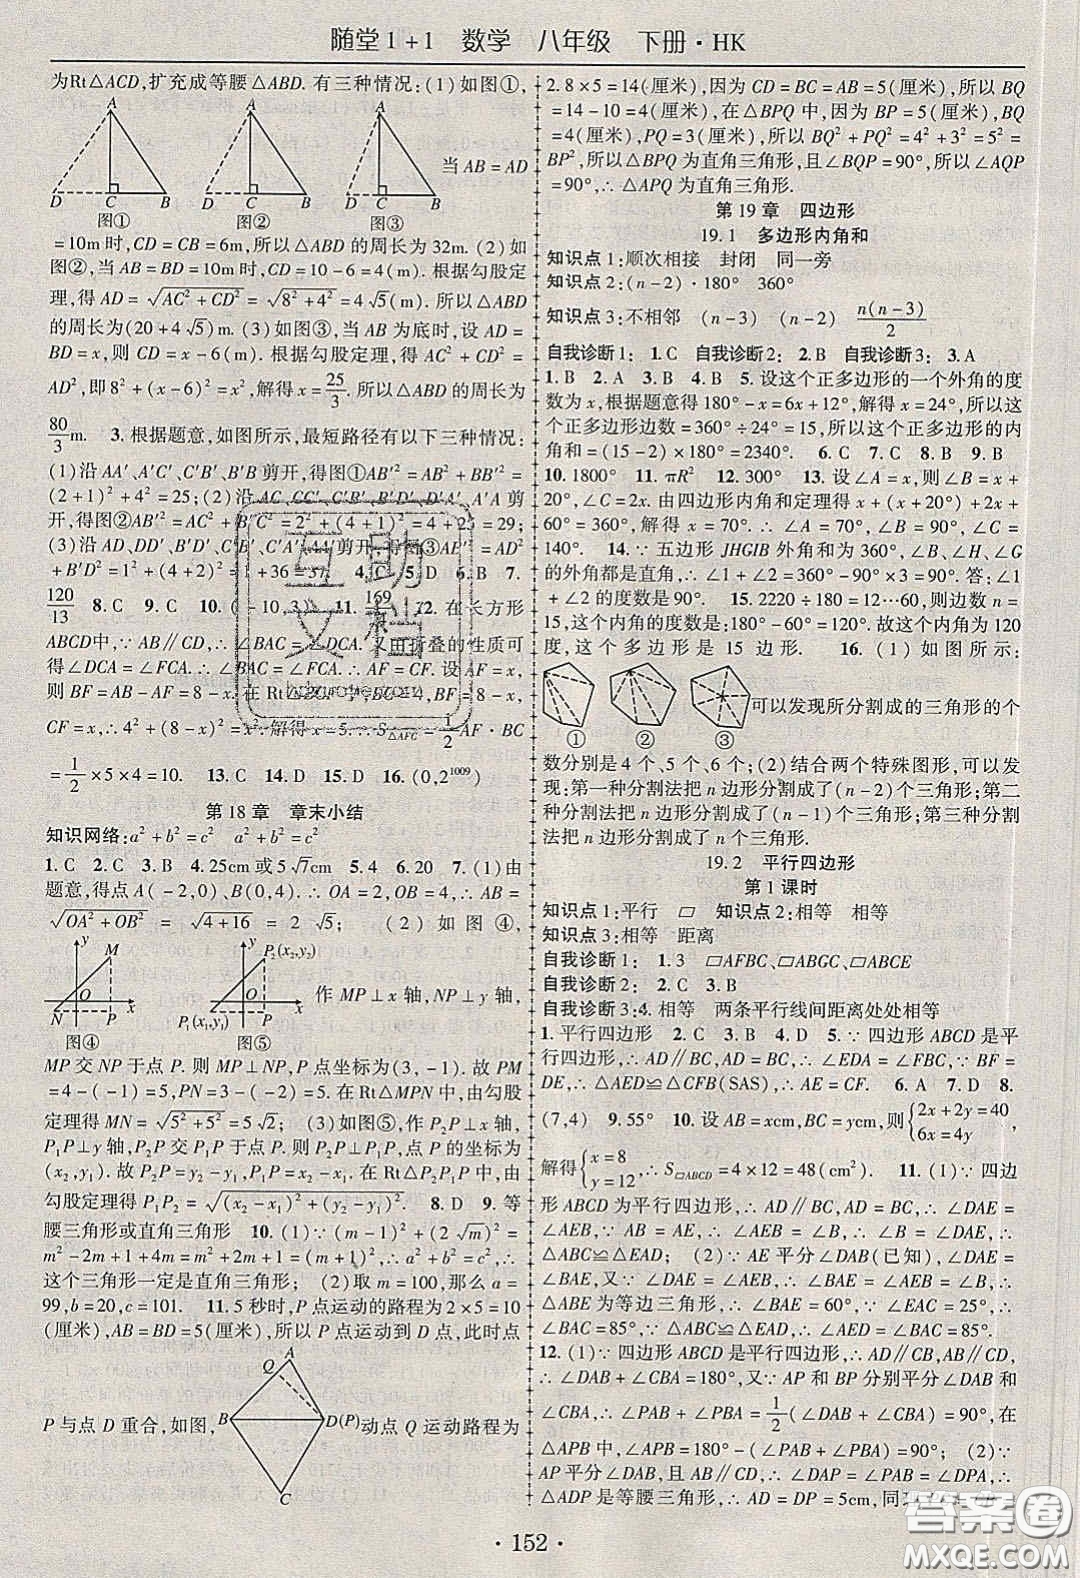 随堂1+1 数学 八年级 下册·HK
为Rt△ACD,扩充成等腰△ABD.有三种情况:(1)如图①,
A A A
当AB=AD
D C B D C B D C B
图① 图② 图③
=10m时,CD=CB=6m,所以△ABD的周长为32m.(2)如
图②,当AB=BD=10m时,CD=10-6=4(m).根据勾股定
理,得AD=√(AC²+CD²)=√(8²+4²)=4√5(m).所以△ABD
的周长为(20+4√5)m.(3)如图③,当AB为底时,设AD=
BD=x,则CD=x-6(m).根据勾股定理,得AC²+CD²=
AD²,即8²+(x-6)²=x²,解得x=25/3.所以△ABD的周长为
80/3m. 3.根据题意,如图所示,最短路径有以下三种情况:
(1)沿AA′、A′C′、C′B′、B′B剪开,得图①AB′²=AB²+BB′²=
(2+1)²+4²=25;(2)沿AC、CC′、C′B′、B′D′、D′A′、A′A剪
开,得图②AB′²=AC²+B′C²=2²+(4+1)²=4+25=29;
(3)沿AD、DD′、B′D′、C′B′、C′A′、AA′剪开,得图③AB′²=AD²
+B′D²=1²+(4+2)²=1+36=37. 4.C 5.D 6.B 7.
120/13 8.C 9.C 10.(-10,3) 11.169 12.在长方形
ABCD中,∵AB∥CD,∴∠BAC=∠DCA.又由折叠的性质可
得∠BAC=∠FCA.∴∠DCA=∠FCA.∴AF=CF.设AF=x,
则BF=AB-AF=8-x.在Rt△BCF中,BC=4,BF=8-x,
CF=x,∴4²+(8-x)²=x².解得x=5.∴S△AFC=1/2AF·BC
=1/2×5×4=10. 13.C 14.D 15.D 16.(0,2¹⁰⁰⁹)
第18章 章末小结
知识网络:a²+b²=c² a²+b²=c²
1.C 2.C 3.B 4.25cm或5√7cm 5.4 6.20 7.(1)由
题意,得点A(-2,0),B(0,4).∴OA=2,OB=4,∴AB=
√(OA²+OB²)=√(4+16)=2√5; (2)如图④,
y M y P₂(x₂,y₂)
O x O x
N P P₁(x₁,y₁) P
图④ 图⑤
作MP⊥x轴,NP⊥y轴,
MP交NP于点P.则MP⊥NP,P点坐标为(3,-1).故PM
=4-(-1)=5,PN=3-(-2)=5.在Rt△MPN中,由勾股
定理得MN=√(5²+5²)=5√2; (3)如图⑤,作P₂P⊥x轴,
P₁P⊥y轴,P₂P交P₁P于点P.则P₂P⊥P₁P,点P的坐标为
(x₂,y₁).故P₂P=y₂-y₁,P₁P=x₂-x₁.在Rt△P₁P₂P中,由
勾股定理得P₁P₂=√((x₂-x₁)²+(y₂-y₁)²). 8.D 9.等
腰三角形或直角三角形 10.(1)∵(m-1)²+(2√m)²=
m²-2m+1+4m=m²+2m+1=(m+1)²,∴a²+b²=c²,∴
这个三角形一定是直角三角形; (2)取m=100,那么a=
99,b=20,c=101. 11.5秒时,P点运动的路程为2×5=10
(厘米),AB=BD=5(厘米),所以P点运动到D点,此时点
A
Q
P与点D重合,如图, B D(P) 动点Q运动路程为
C
2.8×5=14(厘米),因为CD=BC=AB=5(厘米),所以BQ
=14-10=4(厘米),在△BPQ中,因为BP=5(厘米),BQ
=4(厘米),PQ=3(厘米),所以BQ²+PQ²=4²+3²=5²=
BP²,所以△BPQ为直角三角形,且∠BQP=90°,所以∠AQP
=90°,∴△APQ为直角三角形.
第19章 四边形
19.1 多边形内角和
知识点1:顺次相接 封闭 同一旁
知识点2:(n-2)·180° 360°
知识点3:不相邻 (n-3) (n-2) n(n-3)/2
自我诊断1:1.C 自我诊断2:2.B 自我诊断3:3.A
1.B 2.A 3.B 4.B 5.设这个正多边形的一个外角的度
数为x,根据题意得180°-x=6x+12°,解得x=24°,所以这
个正多边形边数=360°÷24°=15,所以这个正多边形的内
角和=(15-2)×180°=2340°. 6.C 7.C 8.B 9.B
10.1800° 11.πR² 12.300° 13.设∠A=x,则∠B=x+
20°,∠C=2x.由四边形内角和定理得x+(x+20°)+2x+
60°=360°,解得x=70°.∴∠A=70°,∠B=90°,∠C=
140°. 14.∵五边形JHGIB外角和为360°,∠B、∠H、∠G
的外角都是直角,∴∠1+∠2=360°-90°×3=90°.答:∠1
+∠2的度数是90°. 15.2220÷180=12…60,则边数n=
15,这个内角的度数是:180°-60°=120°.故这个内角为120
度,这个多边形是15边形. 16.(1)如图所示:
① ② ③ 可以发现所分割成的三角形的个
数分别是4个、5个、6个;(2)结合两个特殊图形,可以发
现:第一种分割法把n边形分割成了(n-2)个三角形,第二
种分割法把n边形分割成了(n-1)个三角形,第三种分割
法把n边形分割成了n个三角形.
19.2 平行四边形
第1课时
知识点1:平行 ▱ 知识点2:相等 相等
知识点3:相等 距离
自我诊断1:1.3 ▱AFBC、▱ABGC、▱ABCE
自我诊断2:2.C 3.B
自我诊断3:4.相等 两条平行线间距离处处相等
1.平行四边形 2.C 3.B 4.D 5.∵四边形ABCD是平
行四边形,∴AD∥BC,AD=BC,∴∠EDA=∠FBC,∵BF=
DE,∴△AED≌△CFB(SAS),∴AE=CF. 6.A 7.D 8.
(7,4) 9.55° 10.设AB=xcm,BC=ycm,则{2x+2y=40, 6x=4y,
解得{x=8 y=12,∴S▱ABCD=4×12=48(cm²). 11.(1)∵四边
形ABCD为平行四边形,∴AD∥BC,AD=BC,∴∠DAE=
∠AEB.∵AB=AE,∴∠AEB=∠B,∴∠B=∠DAE,∴
△ABC≌△EAD; (2)∵AE平分∠DAB(已知),∠DAE=
∠AEB,∴∠DAE=∠AEB=∠BAE,∴∠BAE=∠AEB=∠B,∴
△ABE为等边三角形,∴∠BAE=60°,∵∠EAC=25°,∴
∠BAC=85°,∵△ABC≌△EAD,∴∠AED=∠BAC=85°.
12.(1)∵四边形ABCD是平行四边形,∴AD∥CB,AB∥CD,∴
∠DAB+∠CBA=180°,又∵AP和BP分别平分∠DAB和
∠CBA,∴∠PAB+∠PBA=1/2(∠DAB+∠CBA)=90°,在
△APB中,∠APB=180°-(∠PAB+∠PBA)=90°; (2)∵
AP平分∠DAB,且AB∥CD,∴∠DAP=∠PAB=∠DPA,∴
△ADP是等腰三角形,∴AD=DP=5cm,同
· 152 ·
互助
文档
答案圈
MXQE.COM